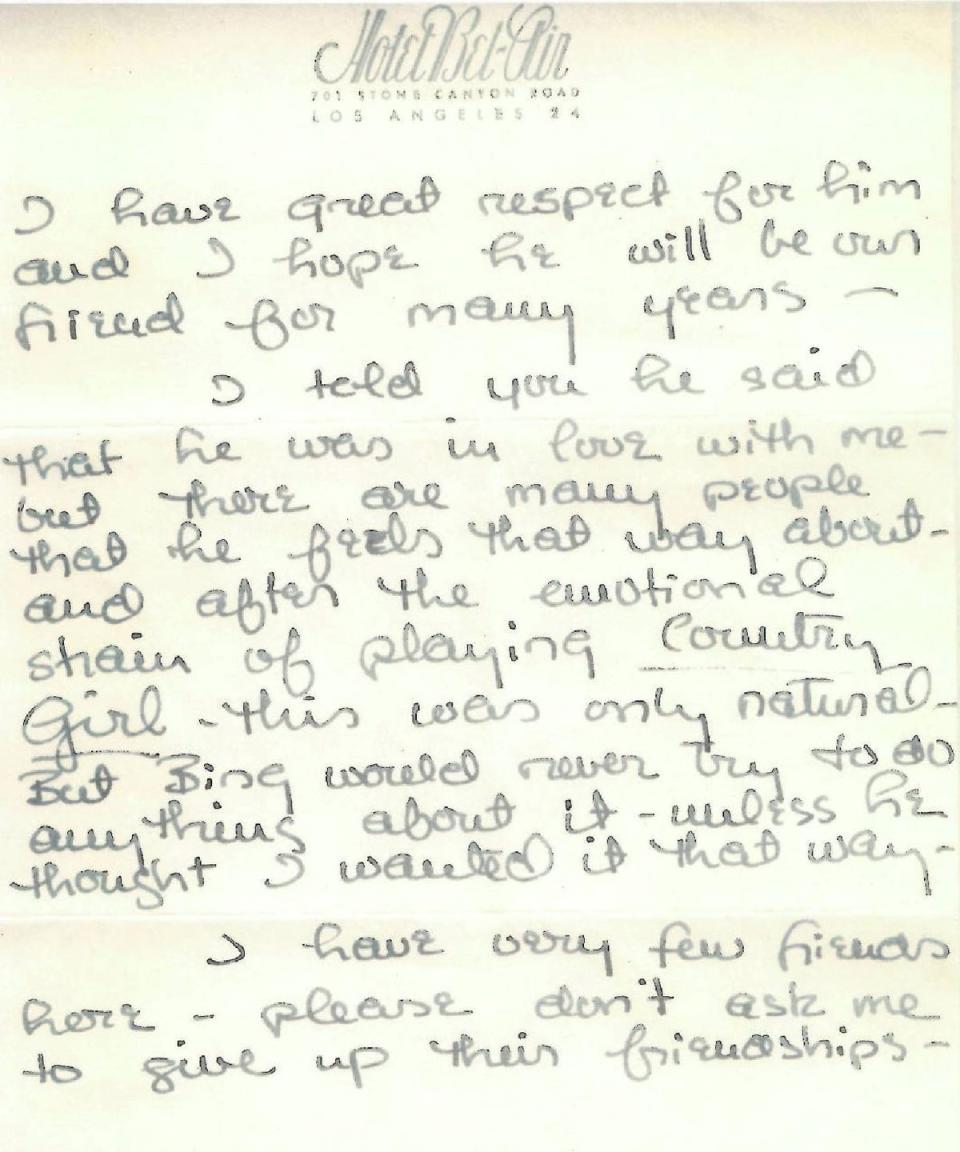 Hotel Bel-Air
701 STONE CANYON ROAD
LOS ANGELES 24
I have great respect for him
and I hope he will be our
friend for many years —
I told you he said
that he was in love with me —
but there are many people
that he feels that way about -
and after the emotional
strain of playing Country
Girl - this was only natural -
But Bing would never try to do
anything about it - unless he
thought I wanted it that way -
I have very few friends
here - please don't ask me
to give up their friendships -